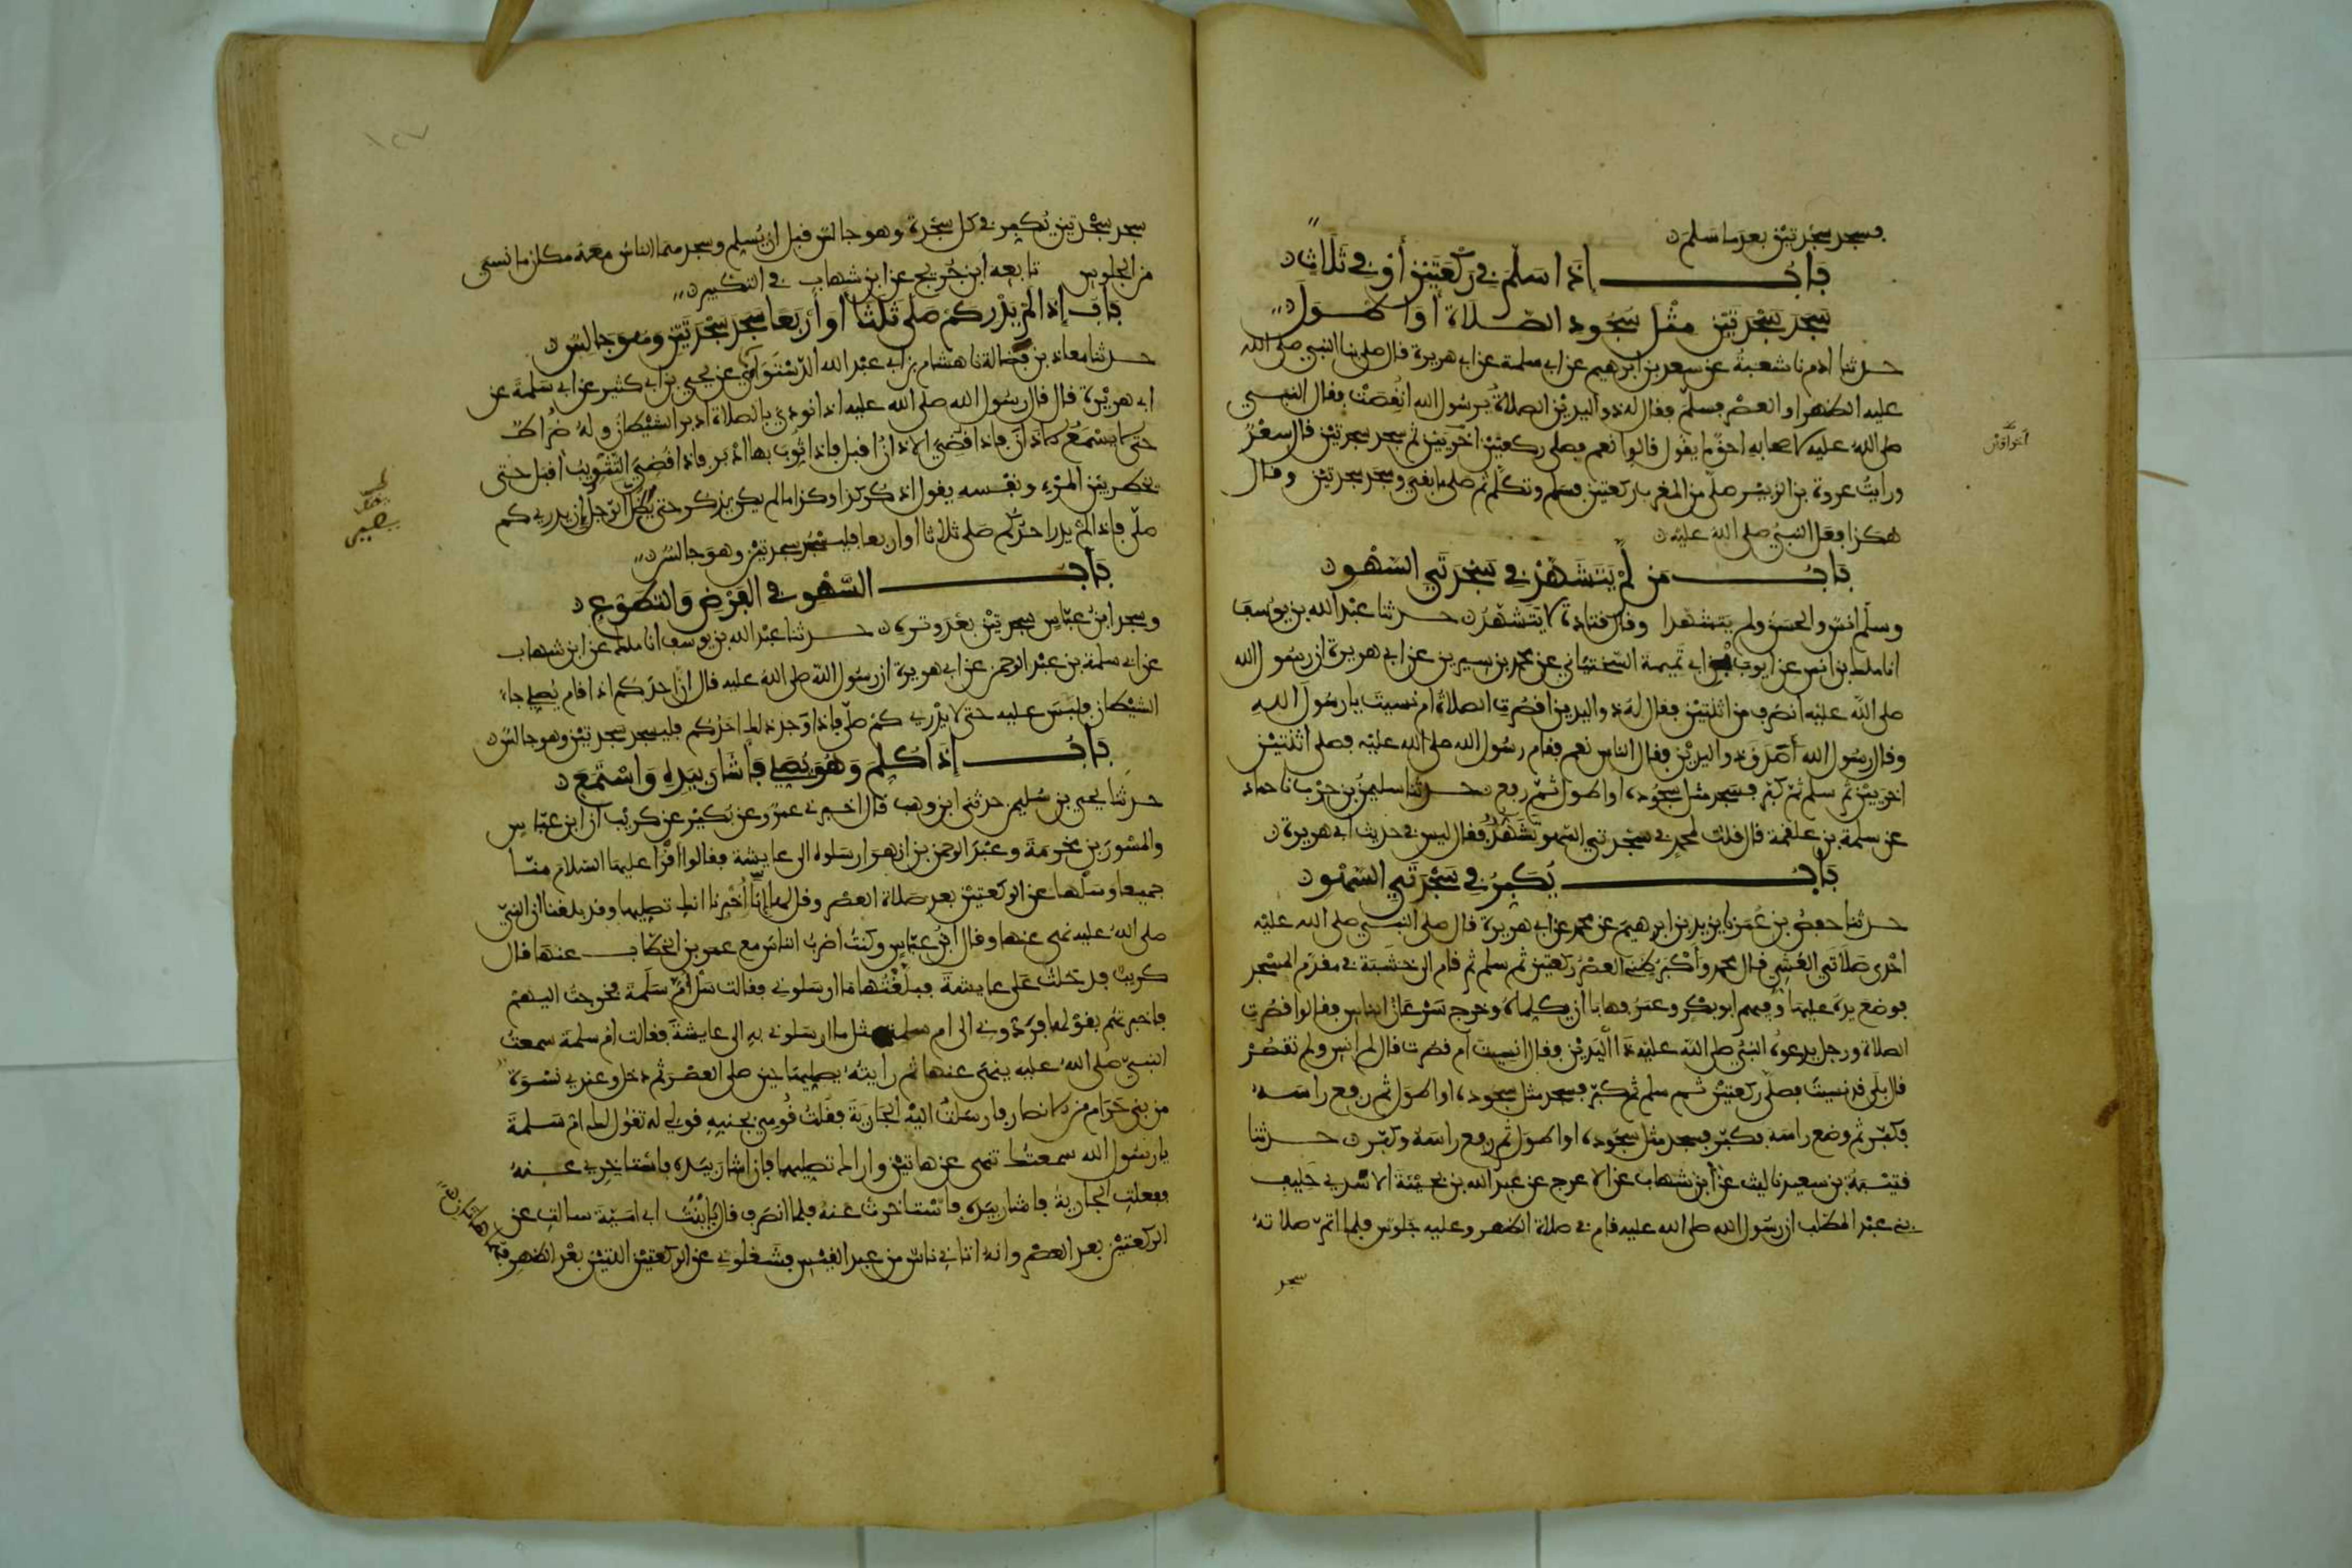 فسجد سجدتين بعدما سلم
باب إذا سلم في ركعتين أو في ثلاث
سجد سجدتين مثل سجود الصلاة أو أطول
حدثنا ادم نا شعبة عن سعد بن ابرهيم عن ابي سلمة عن ابي هريرة قال صلى بنا النبي صلى الله
عليه الظهر او العصر فسلم فقال له ذو اليدين الصلاة يرسول الله انقصت فقال النبي
صلى الله عليه لاصحابه احق ما يقول قالوا نعم فصلى ركعتين اخريين ثم سجد سجدتين قال سعد
ورايت عروة بن الزبير صلى من المغرب ركعتين فسلم وتكلم ثم صلى ما بقي وسجد سجدتين وقال
هكذا فعل النبي صلى الله عليه
باب من لم يتشهد في سجدتي السهو
وسلم انس والحسن ولم يتشهدا وقال قتادة لا يتشهد حدثنا عبد الله بن يوسف
انا ملك ابن انس عن ايوب بن ابي تميمة السختياني عن محمد بن سيرين عن ابي هريرة ان رسول الله
صلى الله عليه انصرف من اثنتين فقال له ذو اليدين اقصرت الصلاة ام نسيت يا رسول الله
وقال رسول الله أصدق ذو اليدين فقال الناس نعم فقام رسول الله صلى الله عليه فصلى اثنتين
اخريين ثم سلم ثم كبر فسجد مثل سجوده او اطول ثم رفع حدثنا سليمن بن حرب نا حماد
عن سلمة بن علقمة قال قلت لمحمد في سجدتي السهو تشهد فقال ليس في حديث ابي هريرة
باب يكبر في سجدتي السهو
حدثنا حفص بن عمر نا يزيد بن ابرهيم عن محمد عن ابي هريرة قال صلى النبي صلى الله عليه
احدى صلاتي العشي قال محمد وأكبر ظني العصر ركعتين ثم سلم ثم قام الى خشبة في مقدم المسجد
فوضع يده عليها وفيهم ابو بكر وعمر فهابا ان يكلماه وخرج سرعان الناس فقالوا قصرت
الصلاة ورجل يدعوه النبي صلى الله عليه ذا اليدين فقال انسيت ام قصرت فقال لم انس ولم تقصر
قال بلى قد نسيت فصلى ركعتين ثم سلم ثم كبر فسجد مثل سجوده او اطول ثم رفع راسه
فكبر ثم وضع راسه فكبر فسجد مثل سجوده او اطول ثم رفع راسه وكبر حدثنا
قتيبة بن سعيد نا ليث عن ابن شهاب عن الاعرج عن عبد الله بن بحينة الاسدي حليف
بني عبد المطلب ان رسول الله صلى الله عليه قام في صلاة الظهر وعليه جلوس فلما اتم صلاته
سجد
سجد سجدتين يكبر في كل سجدة وهو جالس قبل ان يسلم وسجدهما الناس معه مكان ما نسي
من الجلوس تابعه ابن جريج عن ابن شهاب في التكبير
باب إذا لم يدر كم صلى ثلثا أو أربعا سجد سجدتين وهو جالس
حدثنا معاذ بن فضالة نا هشام بن ابي عبد الله الدستوائي عن يحيى بن ابي كثير عن ابي سلمة عن
ابي هريرة قال قال رسول الله صلى الله عليه اذا نودي بالصلاة ادبر الشيطان وله ضراط
حتى لا يسمع الاذان فاذا قضي الاذان اقبل فاذا ثوب بها ادبر فاذا قضي التثويب اقبل حتى
يخطر بين المرء ونفسه يقول اذكر كذا وكذا ما لم يكن يذكر حتى يظل الرجل ان يدري كم
صلى فاذا لم يدر احدكم كم صلى ثلاثا او اربعا فليسجد سجدتين وهو جالس
باب السهو في الفرض والتطوع
وسجد ابن عباس سجدتين بعد وتره حدثنا عبد الله بن يوسف انا ملك عن ابن شهاب
عن ابي سلمة بن عبد الرحمن عن ابي هريرة ان رسول الله صلى الله عليه قال ان احدكم اذا قام يصلي جاء
الشيطان فلبس عليه حتى لا يدري كم صلى فاذا وجد ذلك احدكم فليسجد سجدتين وهو جالس
باب إذا كلم وهو يصلي فأشار بيده واستمع
حدثنا يحيى بن سليمن حدثني ابن وهب قال اخبرني عمرو عن بكير عن كريب ان ابن عباس
والمسور بن مخرمة وعبد الرحمن بن ازهر ارسلوه الى عايشة فقالوا اقرأ عليها السلام منا
جميعا وسلها عن الركعتين بعد صلاة العصر وقل لها إنا أخبرنا انك تصليهما وقد بلغنا ان النبي
صلى الله عليه نهى عنها وقال ابن عباس وكنت اضرب الناس مع عمر بن الخطاب عنها قال
كريب فدخلت على عايشة فبلغتها ما ارسلوني فقالت سل أم سلمة فخرجت اليهم
فاخبرتهم بقولها فردوني الى ام سلمة بمثل ما ارسلوني به الى عايشة فقالت ام سلمة سمعت
النبي صلى الله عليه ينهى عنها ثم رايته يصليهما حين صلى العصر ثم دخل وعندي نسوة
من بني حرام من الانصار فارسلت اليه الجارية فقلت قومي بجنبه قولي له تقول لك ام سلمة
يا رسول الله سمعتك تنهى عن هاتين واراك تصليهما فان اشار بيده فاستاخري عنه
ففعلت الجارية فاشار بيده فاستاخرت عنه فلما انصرف قال يا بنت ابي امية سالت عن
الركعتين بعد العصر وانه اتاني ناس من عبد القيس فشغلوني عن الركعتين اللتين بعد الظهر فهما هاتان